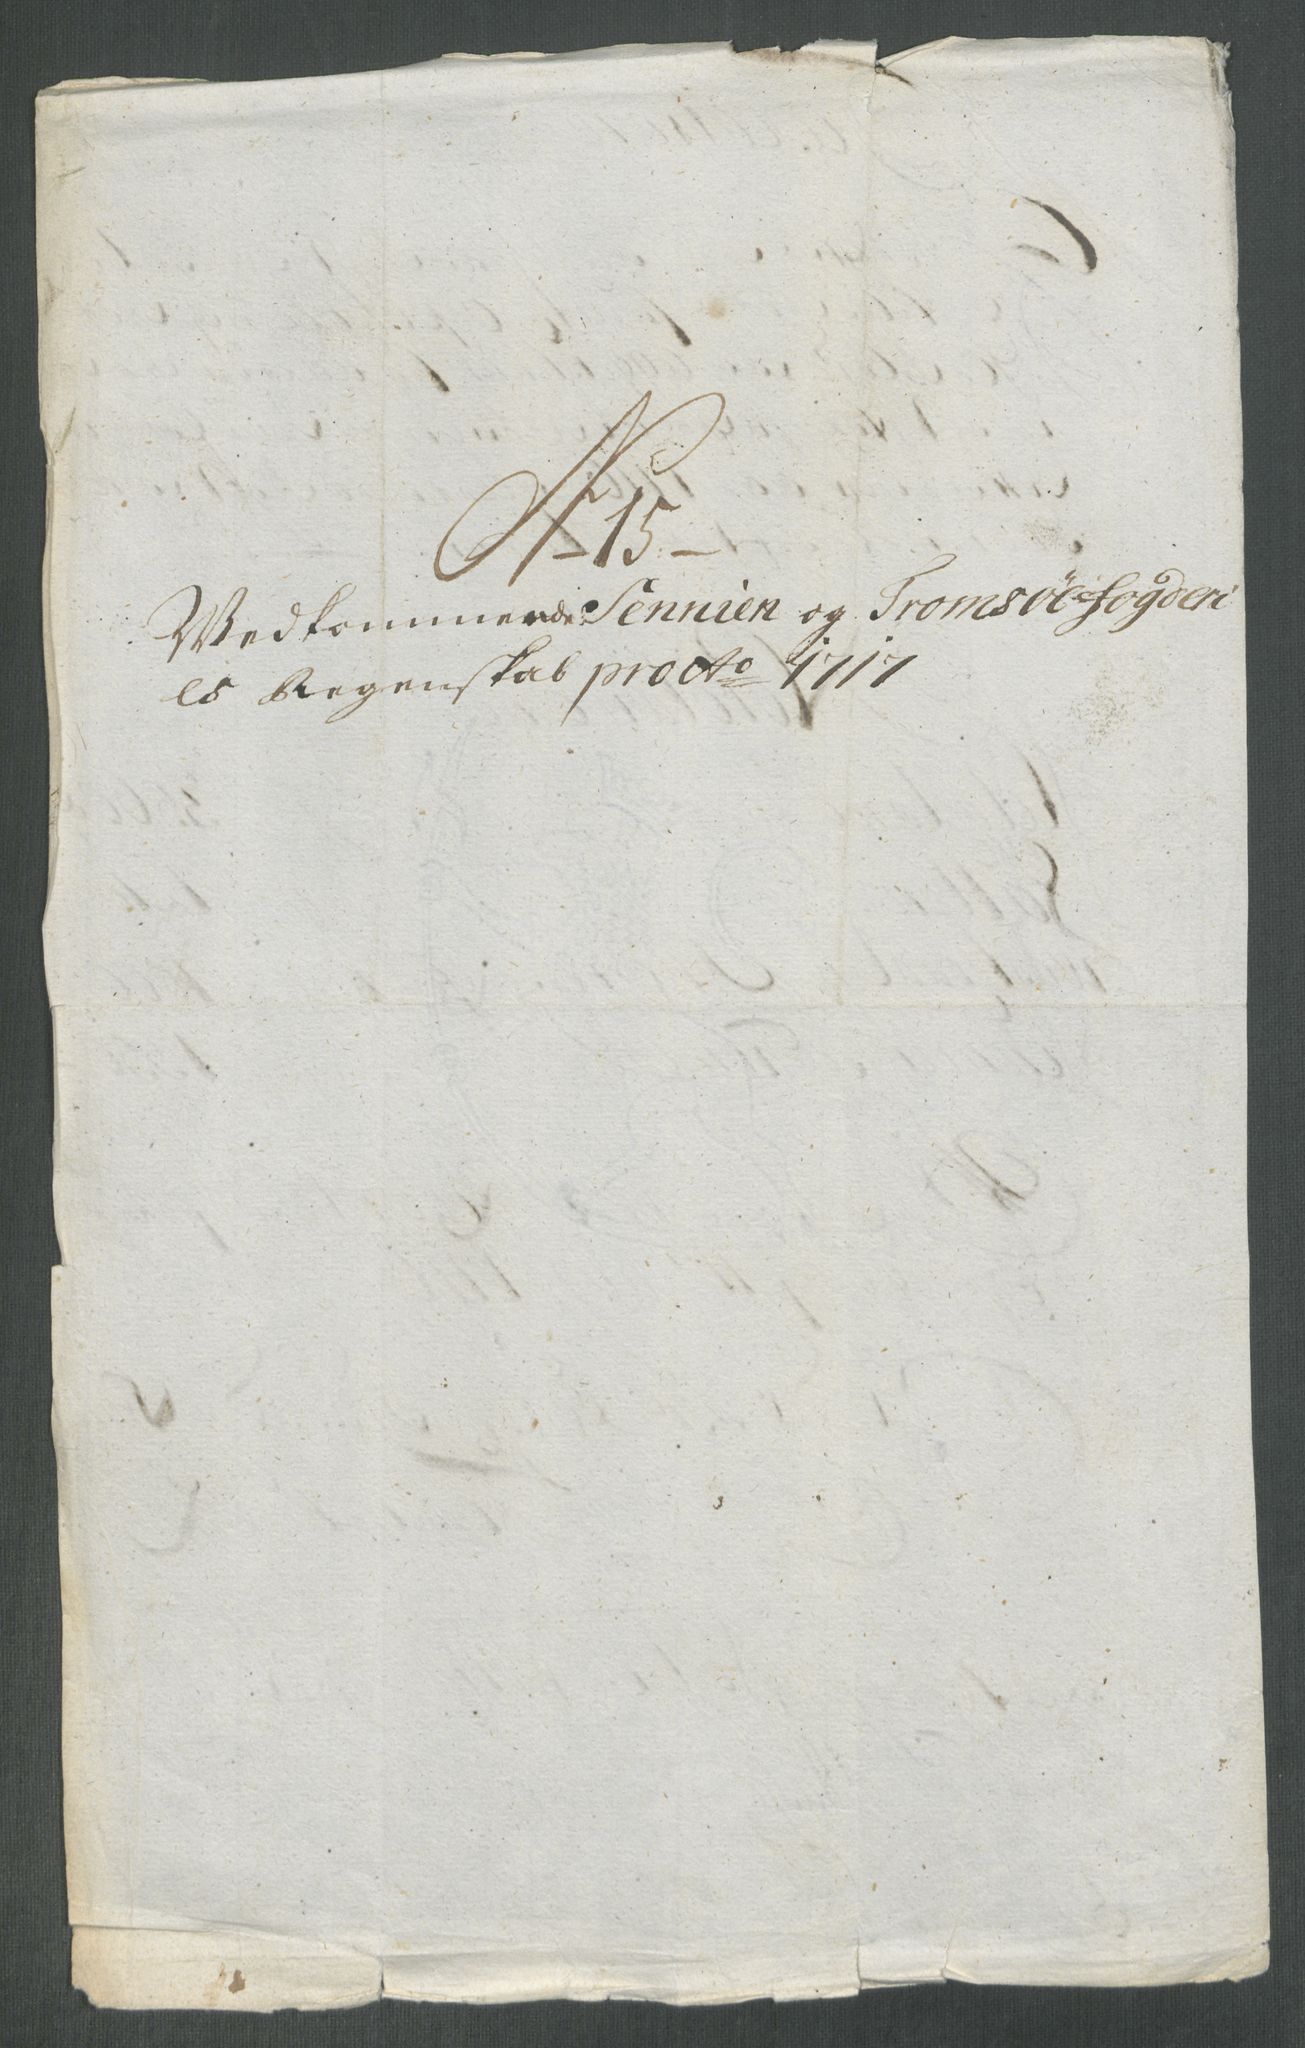 No 15
Vedkommende Sennien og Tromsöe fogderi
es Regenskab pro Ao 1717